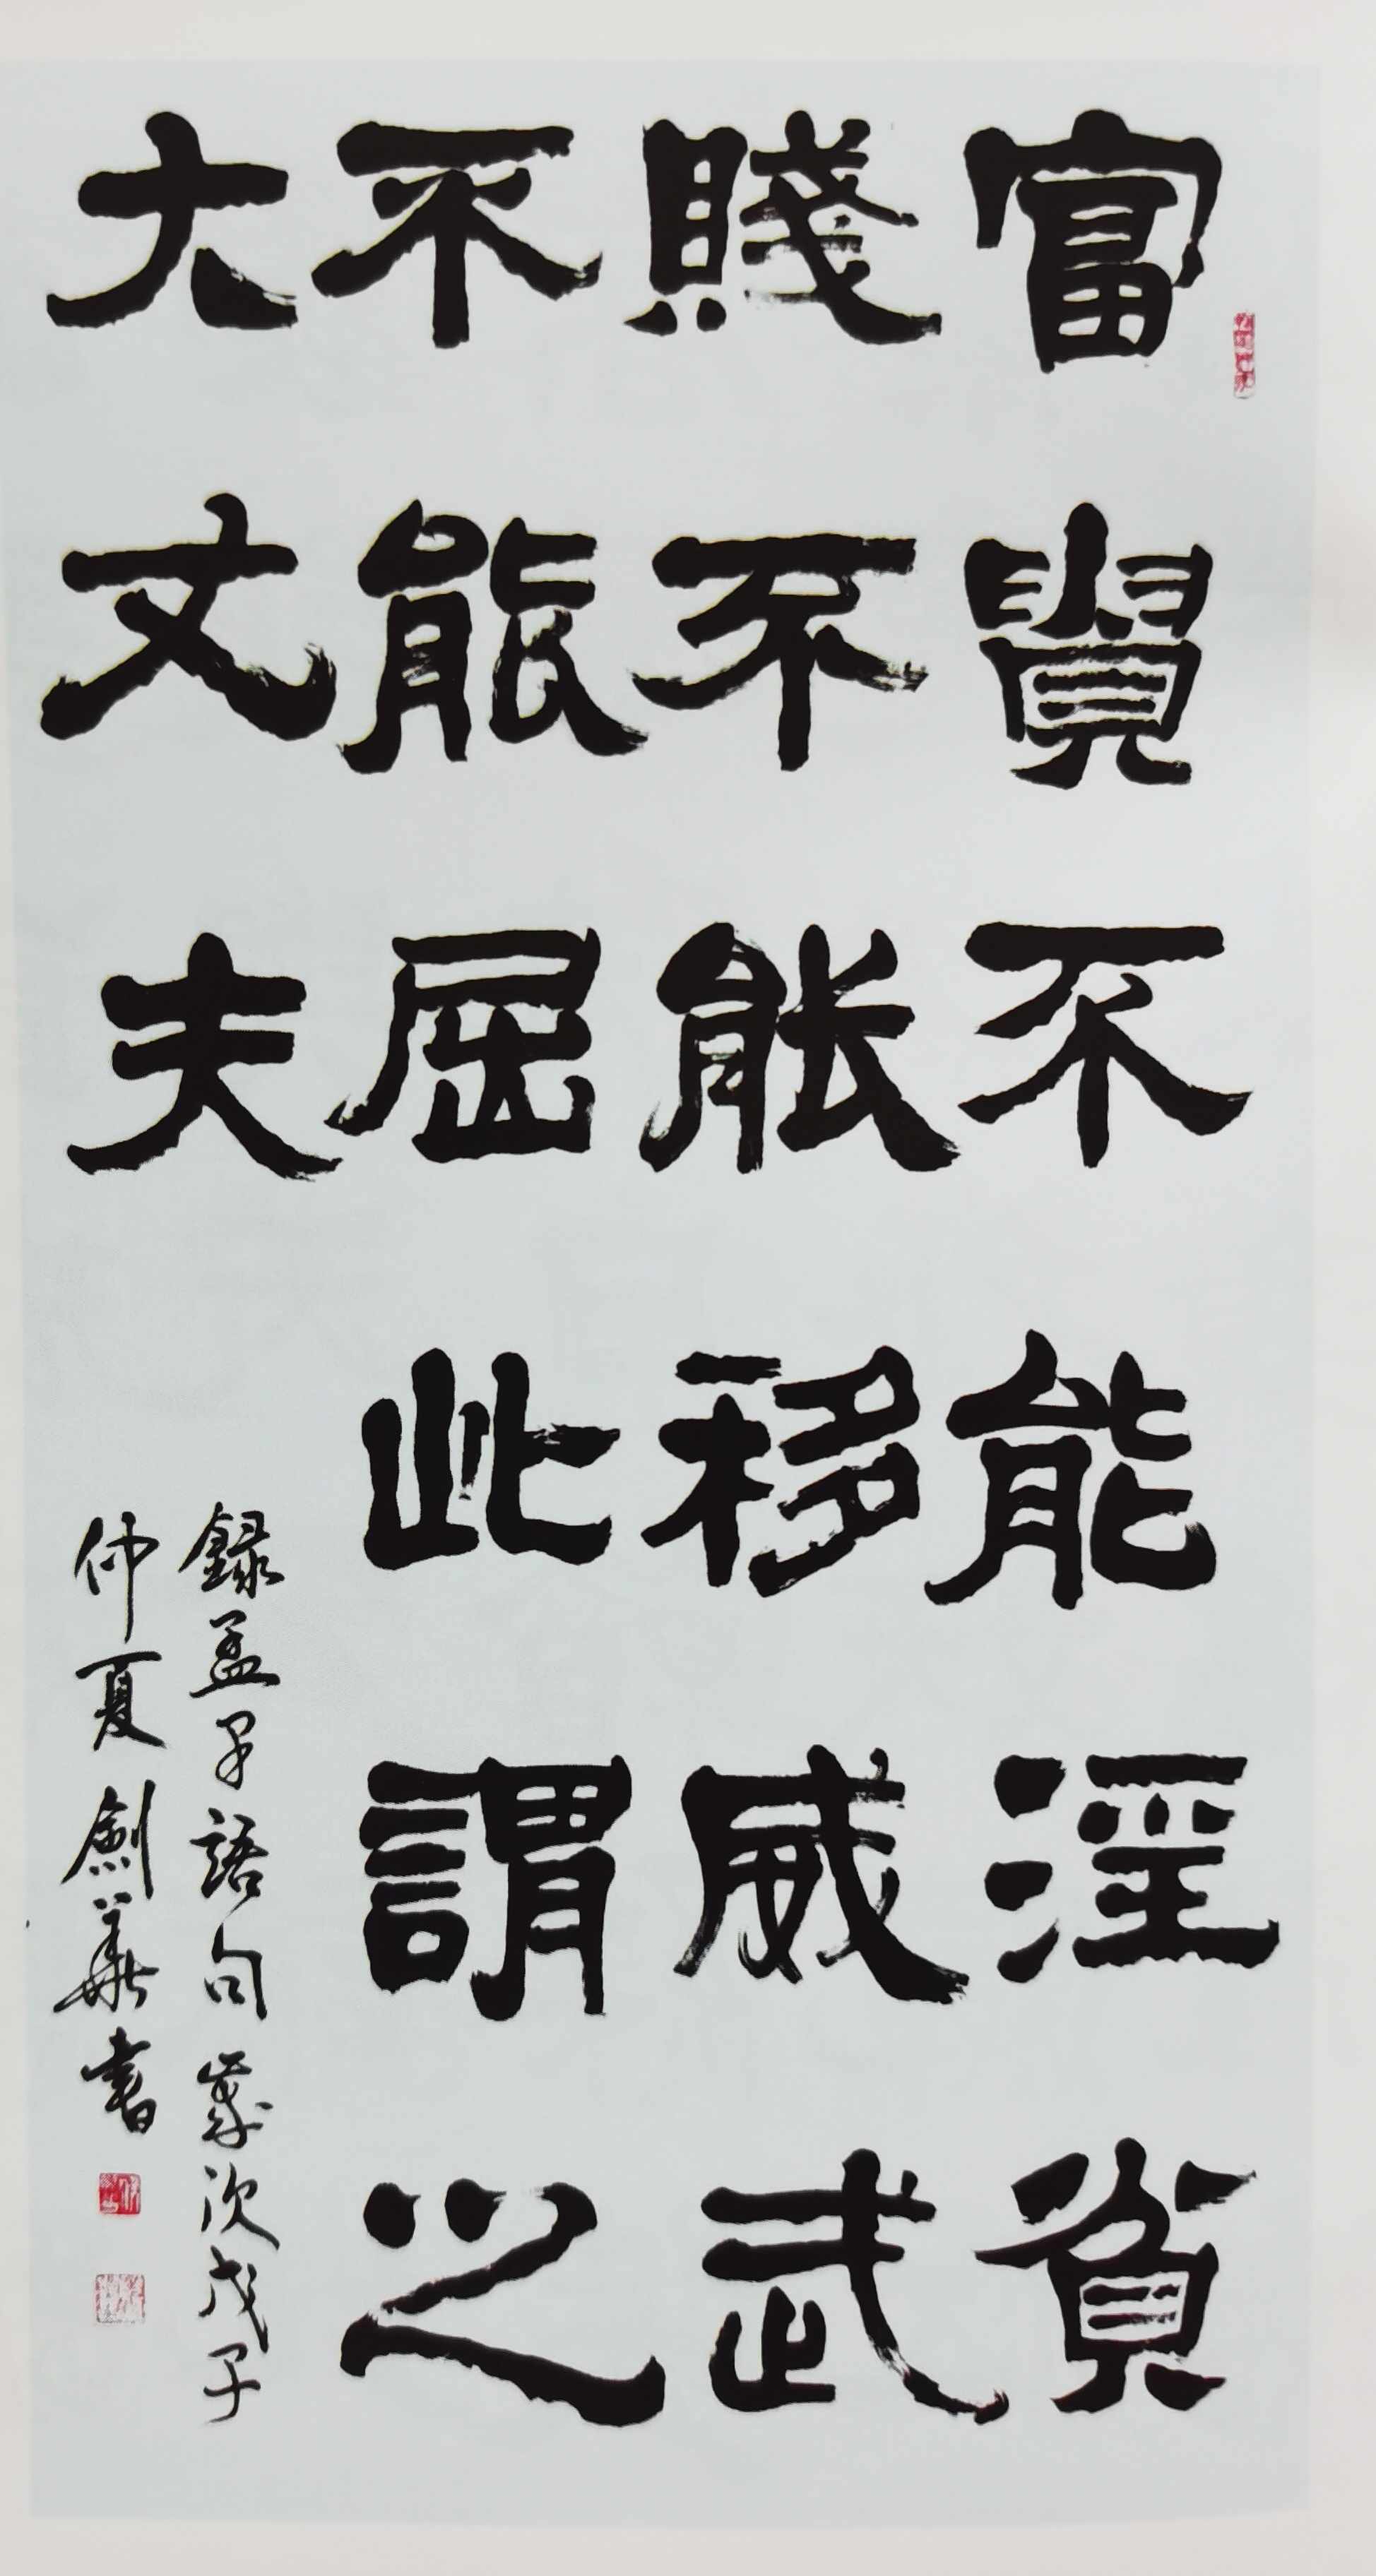 富貴不能淫貧
賤不能移威武
不能屈此謂之
大丈夫
録孟子語句歲次戊子
仲夏劍華書